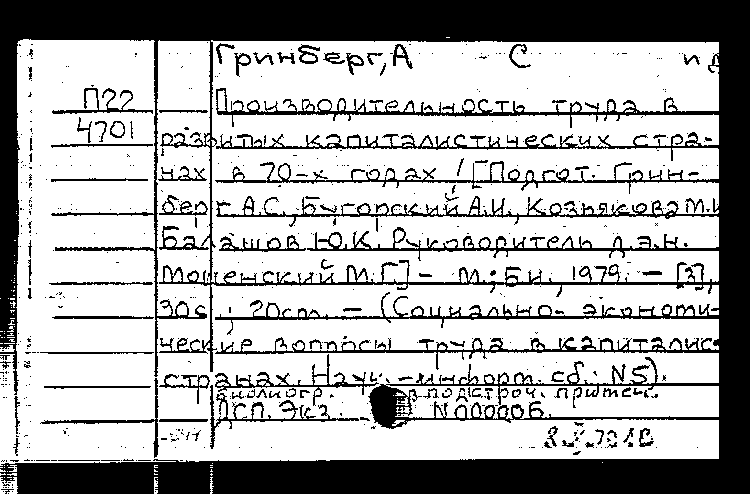 Гринберг, А С
П22
4701
Производительность труда в
развитых капиталистических стра-
нах в 70-х годах / [Подгот. Грин-
берг А.С., Бугорский А.И., Козьякова М.И
Балашов Ю.К. Руководитель д.э.н.
Мошенский М.Г.] - М.; Б.и., 1979. - [3],
30с ; 20см. - (Социально-экономи-
ческие вопросы труда в капиталис-
странах. Науч.-информ. сб.: N5).
Библиогр. в подстроч. примеч.
ДСП. Экз. N 000006.